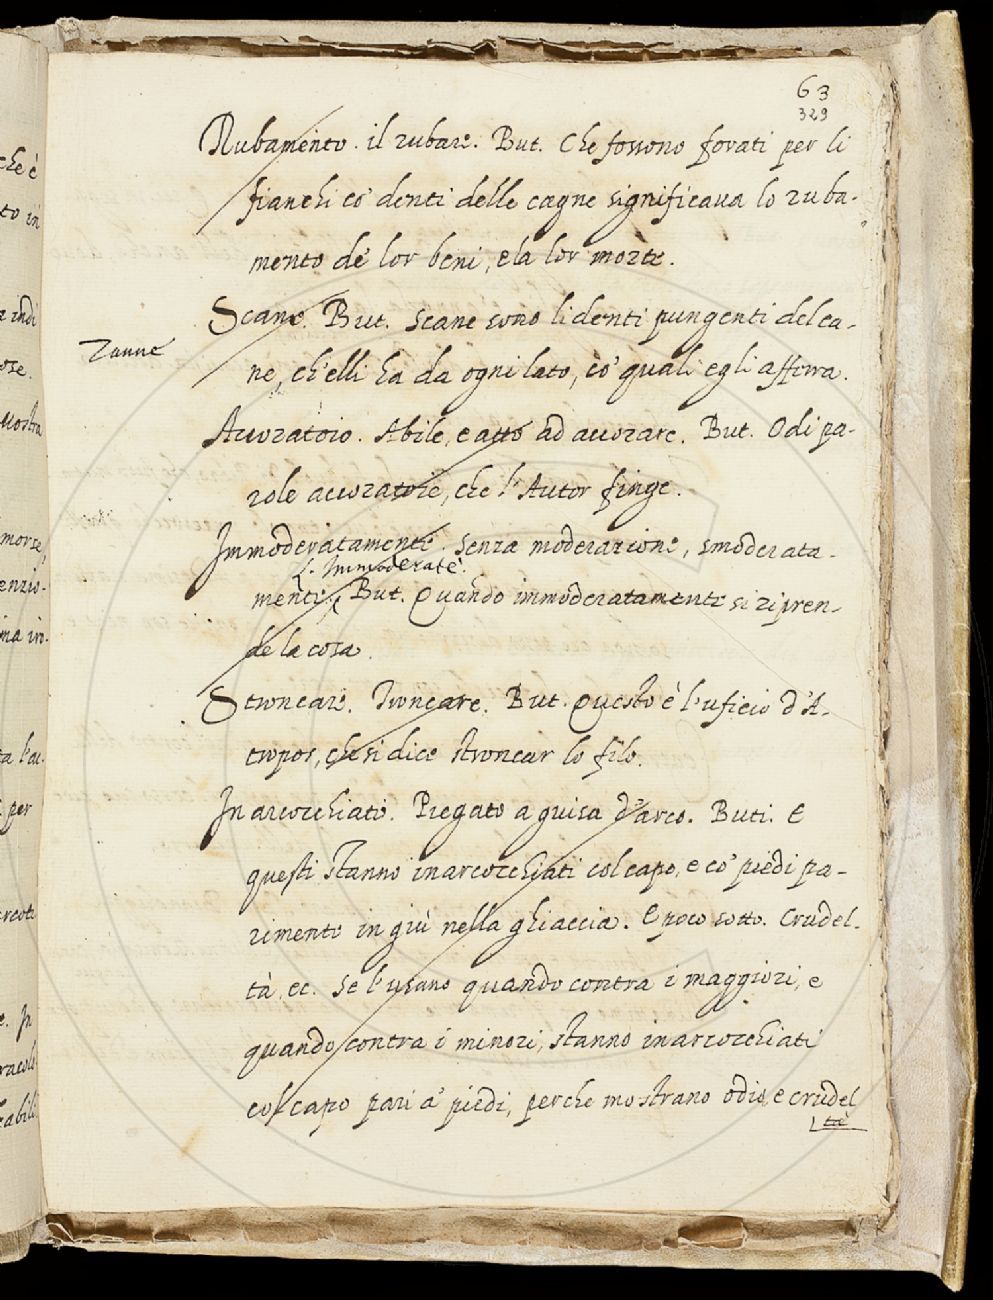 63
329
Rubamento. il rubare. But. Che fossono forati per li
fianchi co' denti delle cagne significava lo ruba-
mento de' lor beni, e la lor morte.
Scane. But. Scane sono li denti pungenti del ca-
Zanne
ne, ch'elli ha da ogni lato, co' quali egli afferra.
Accoratoio. Abile, e atto ad accorare. But. Odi pa-
role accoratoie, che l'Autor finge.
Immoderatamente. Senza moderazione, smoderata-
L. Immoderatè.
mente. But. Quando immoderatamente si ripren-
de la cosa.
Stroncare. Troncare. But. Questo è l'uficio d'A-
tropos, che si dice stroncar lo filo.
Inarcocchiato. Piegato a guisa d'arco. Buti. E
questi stanno inarcocchiati col capo, e co' piedi pa-
rimente in giù nella ghiaccia. E poco sotto. Crudel-
tà, ec. Se l'usano quando contra i maggiori, e
quando contra i minori, stanno inarcocchiati
col capo pari a' piedi, perche mostrano odio, e crudel
tà